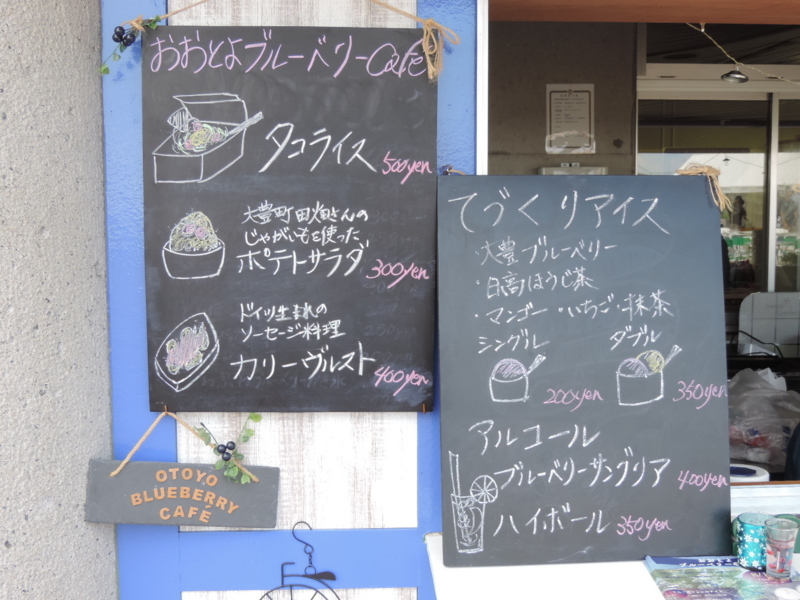 おおとよブルーベリーCafe
タコライス
500yen
大豊町田畑さんの
じゃがいもを使った
ポテトサラダ
300yen
ドイツ生まれの
ソーセージ料理
カリーヴルスト
400yen
OTOYO
BLUEBERRY
CAFÉ
てづくりアイス
・大豊ブルーベリー
・日高ほうじ茶
・マンゴー・いちご・抹茶
シングル ダブル
200yen 350yen
アルコール
ブルーベリーサングリア 400yen
ハイボール 350yen